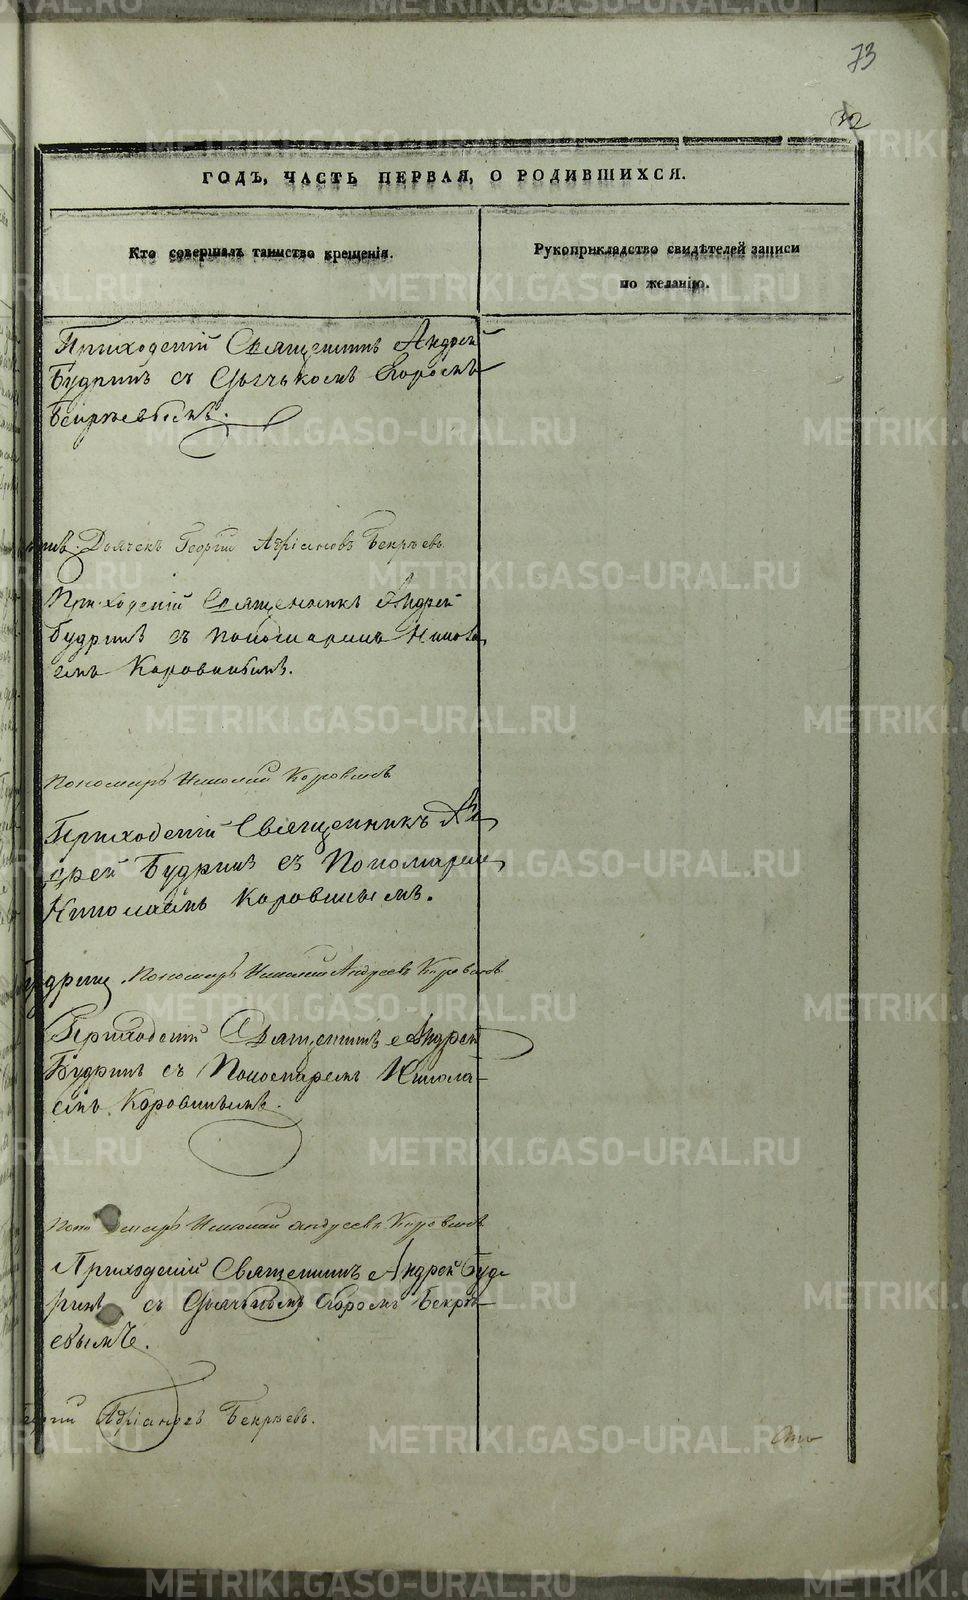 73
32
ГОДЪ, ЧАСТЬ ПЕРВАЯ, О РОДИВШИХСЯ.
Кто совершалъ таинство крещенія.
Рукоприкладство свидѣтелей записи
по желанію.
Приходскій Священникъ Андрей
Будринъ съ Дьячькомъ
Дьячекъ Георгій Адріановъ Бекряевъ
Приходскій Священникъ Андрей
Будринъ съ пономаремъ Никола
емъ Коровинымъ.
Пономарь Николай Коровинъ
Приходскій Священникъ Ан
дрей Будринъ съ Пономаремъ
Николаемъ Коровинымъ.
Будринъ. Пономарь Николай Андреевъ Коровинъ
Приходскій Священникъ Андрей
Будринъ съ Пономаремъ Никола-
емъ Коровинымъ.
Пономарь Николай Андреевъ Коровинъ
Приходскій Священникъ Андрей Буд
ринъ съ Дьячькомъ Бекря-
евымъ.
Адріановъ Бекряевъ.
METRIKI.GASO-URAL.RU